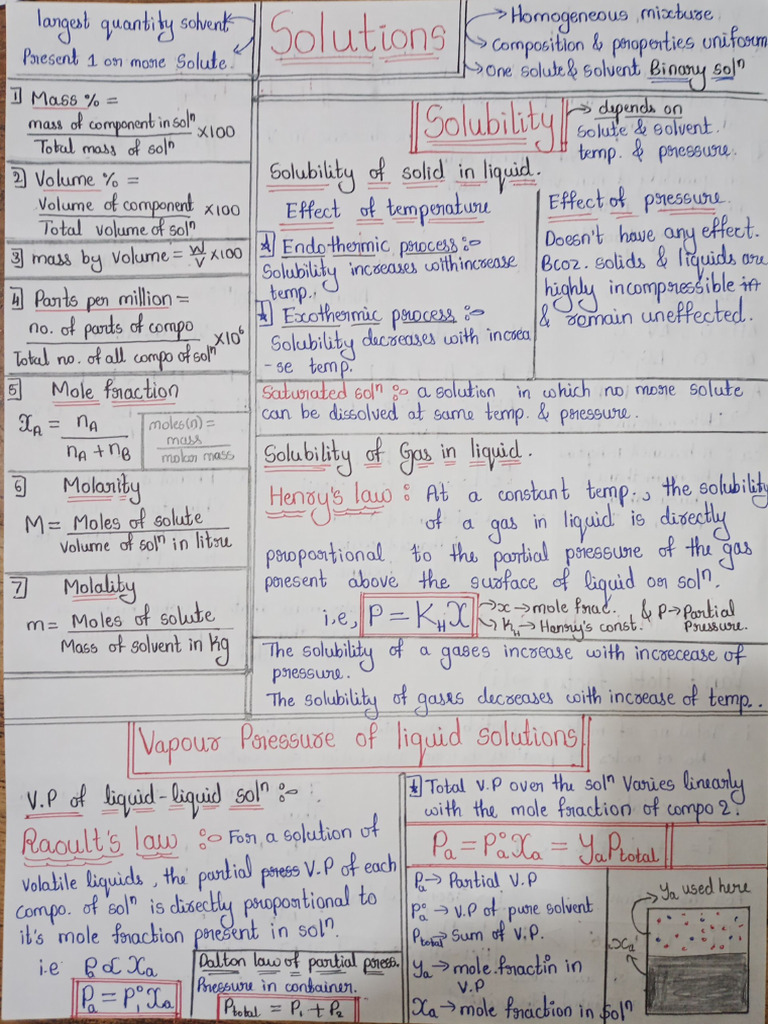 largest quantity solvent
Present 1 or more Solute.
Solutions
Homogeneous mixture
Composition & properties uniform
One solute & solvent Binary solⁿ
1 Mass % =
mass of component in solⁿ
Total mass of solⁿ
×100
2 Volume % =
Volume of component
Total volume of solⁿ
×100
3 mass by Volume = W/V ×100
4 Parts per million =
no. of parts of compo
Total no. of all compo of solⁿ
×10⁶
5 Mole fraction
xA = nA
nA + nB
moles(n) =
mass
molar mass
6 Molarity
M = Moles of solute
Volume of solⁿ in litre
7 Molality
m = Moles of solute
Mass of solvent in Kg
Solubility
depends on
solute & solvent.
temp. & pressure.
Solubility of solid in liquid.
Effect of temperature
Endothermic process :-
Solubility increases with increase
temp.
Exothermic process :-
Solubility decreases with increa
-se temp.
Effect of pressure.
Doesn't have any effect.
Bcoz. solids & liquids are
highly incompressible in
& remain uneffected.
Saturated solⁿ :- a solution in which no more solute
can be dissolved at same temp. & pressure.
Solubility of Gas in liquid.
Henry's law : At a constant temp., the solubility
of a gas in liquid is directly
proportional to the partial pressure of the gas
present above the surface of liquid or solⁿ.
i.e, P = KH X
x → mole frac. & P → Partial
KH → Henry's const. Pressure.
The solubility of a gases increase with increcease of
pressure.
The solubility of gases decreases with increase of temp..
Vapour Pressure of liquid solutions
V.P of liquid-liquid solⁿ :-
Raoult's law :- For a solution of
volatile liquids, the partial press V.P of each
compo. of solⁿ is directly proportional to
it's mole fraction present in solⁿ.
i.e Pa ∝ Xa
Pa = P₁° Xa
Dalton law of partial press.
Pressure in container.
Ptotal = P₁ + P₂
Total V.P over the solⁿ Varies linearly
with the mole fraction of compo 2.
Pa = Pa° Xa = Ya Ptotal
Pa → Partial V.P
Pa° → V.P of pure solvent
Ptotal → Sum of V.P.
Ya → mole fractin in
V.P
Xa → mole fraction in Solⁿ
Ya used here
Xa